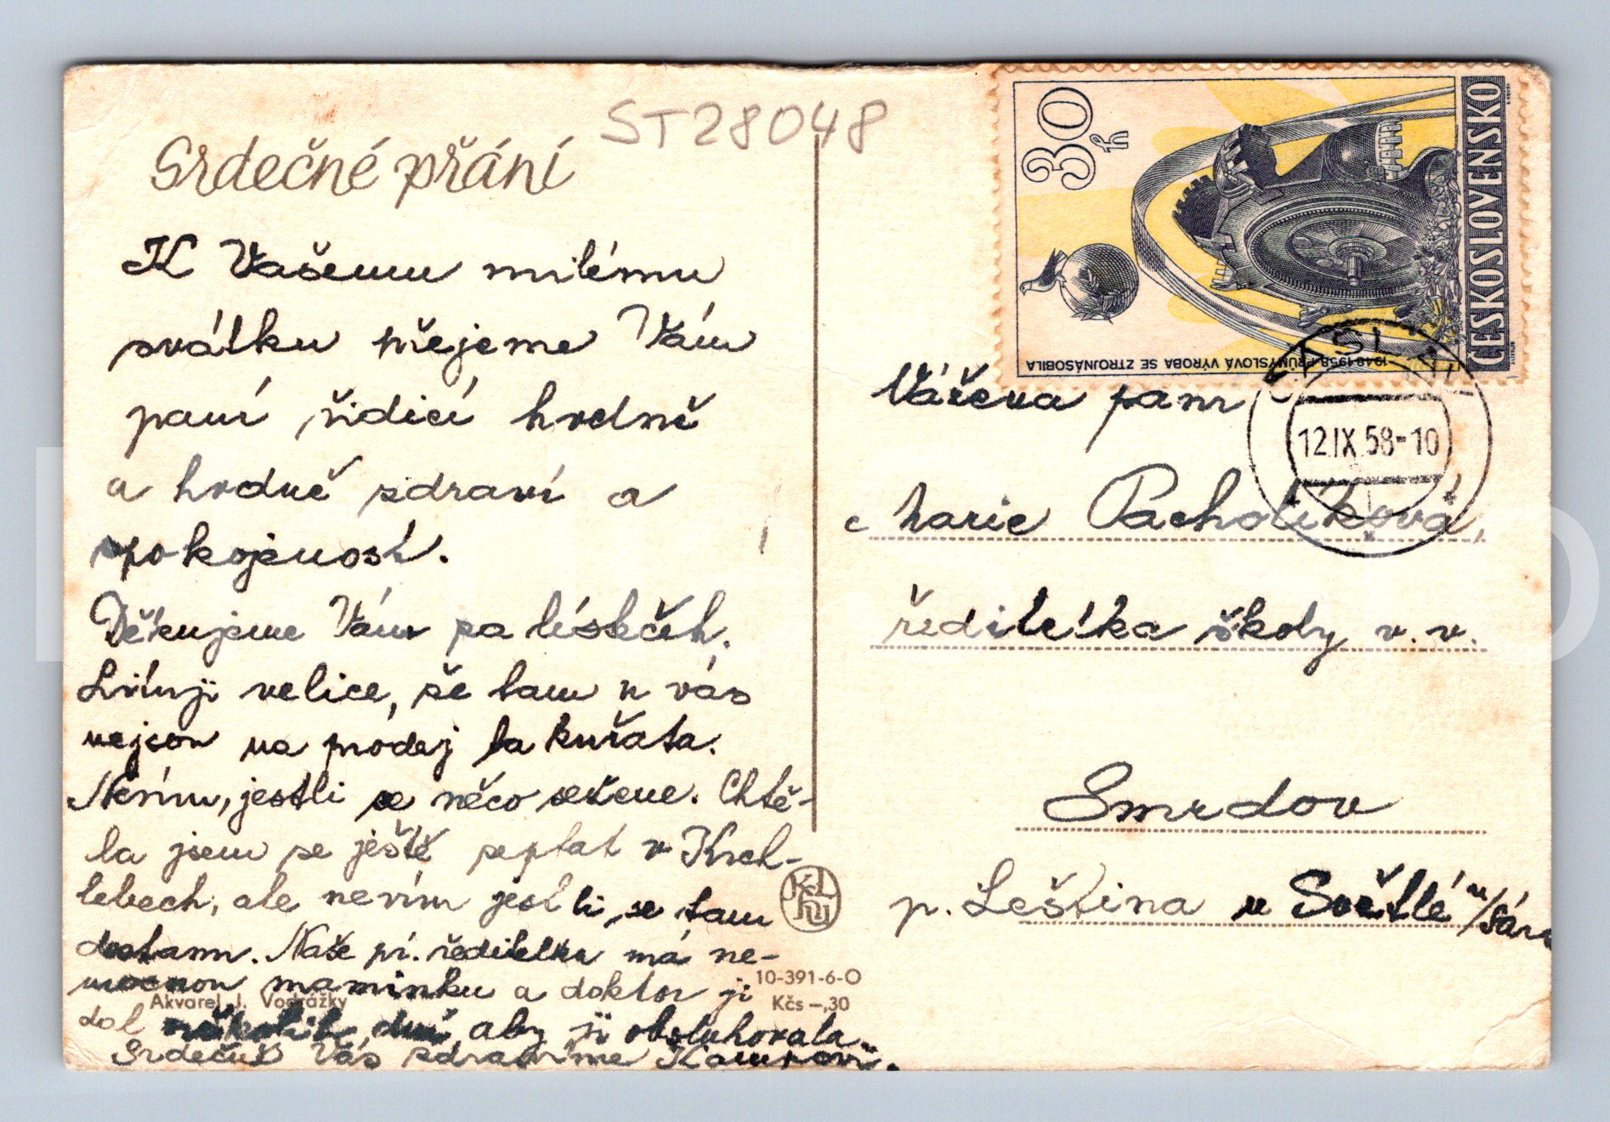 ST28048
Srdečné přání
K Vašemu milému
svátku přejeme Vám
paní řídící hodně
a hodně zdraví a
spokojenosti.
Děkujeme Vám za lísteček.
Lituji velice, že tam u vás
nejsou na prodej ta kuřata.
Nevím, jestli se něco sežene. Chtě-
la jsem se ještě zeptat v Kach-
lebech, ale nevím jestli se tam
dostanu. Naše pí. ředitelka má ne-
mocnou maminku a doktor jí
dal několik dní, aby ji obsluhovala.
Srdečně Vás zdravíme
Akvarel J. Vodrážky
10-391-6-O
Kčs –,30
30 h
ČESKOSLOVENSKO
1948-1958 PRŮMYSLOVÁ VÝROBA SE ZTROJNÁSOBILA
12.IX.58-10
Vážená paní
Marie Pacholíková,
ředitelka školy v. v.
Smrdov
p. Leština u Světlé n/Sáz